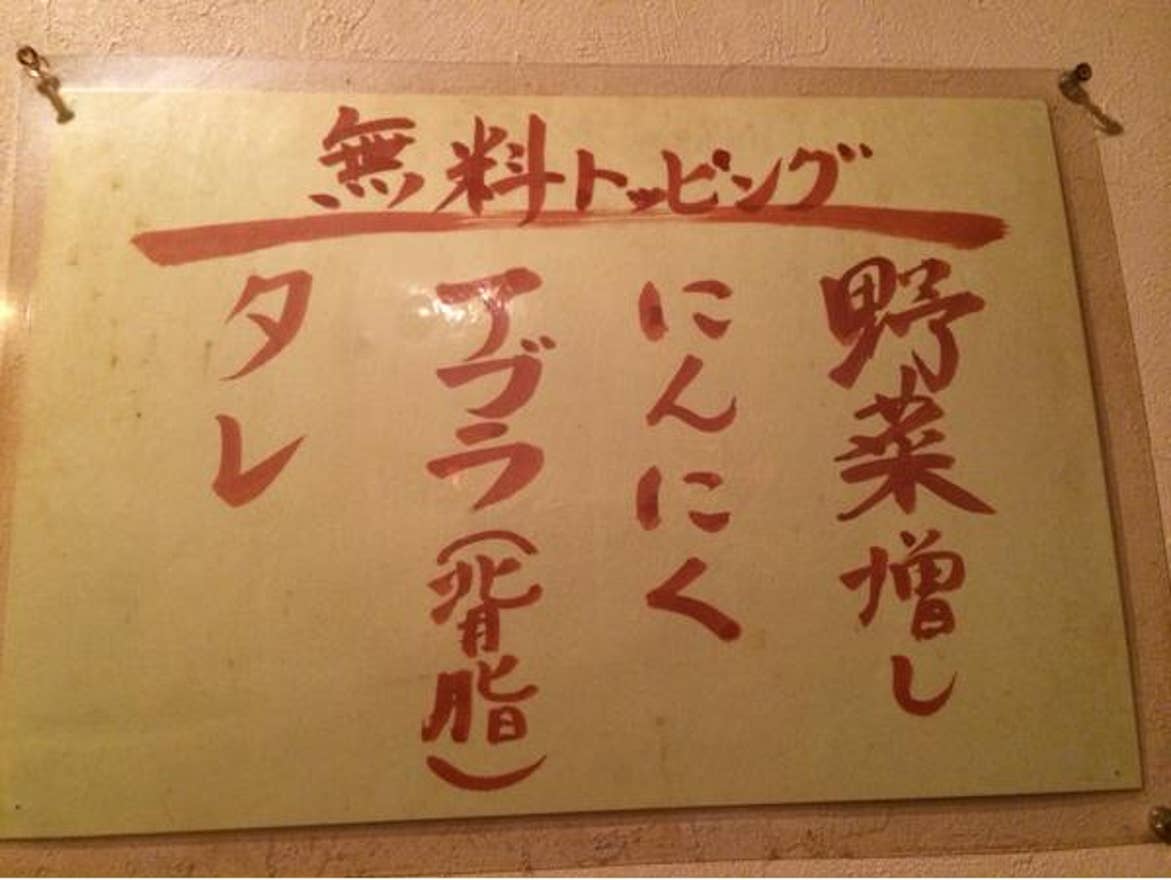 無料トッピング
野菜増し
にんにく
アブラ(背脂)
タレ